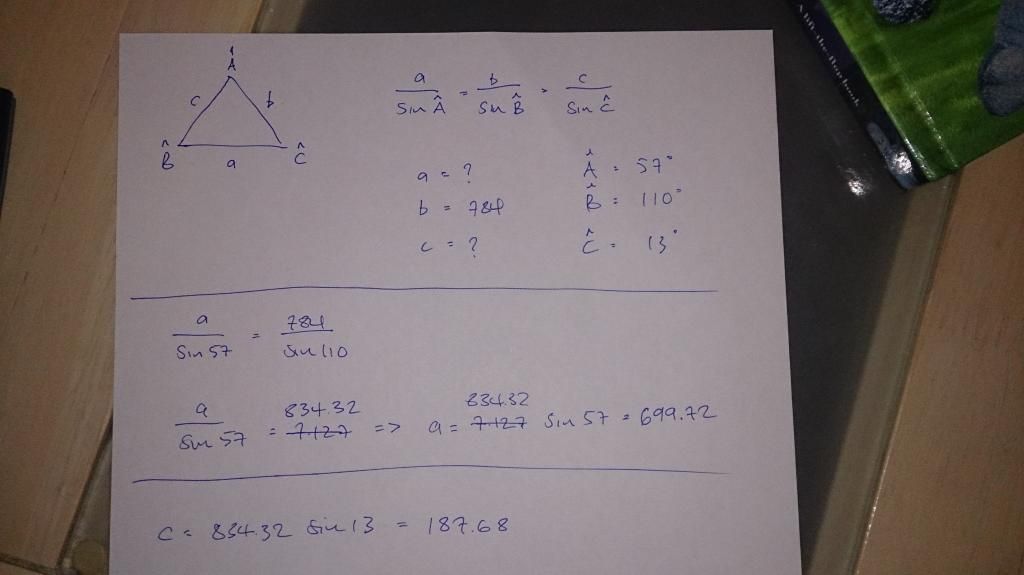 Â
c b
B̂ a Ĉ
a/Sin Â = b/Sin B̂ = c/Sin Ĉ
a = ? Â = 57°
b = 784 B̂ = 110°
c = ? Ĉ = 13°
a/Sin 57 = 784/Sin 110
a/Sin 57 = 834.32 7.127 => a = 834.32 7.127 Sin 57 = 699.72
c = 834.32 Sin 13 = 187.68